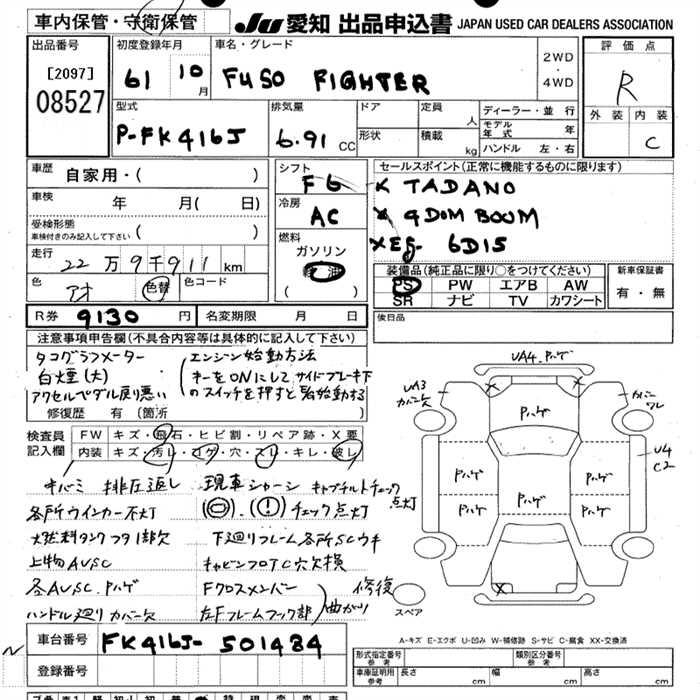 車内保管・守衛保管
JU 愛知 出品申込書 JAPAN USED CAR DEALERS ASSOCIATION
出品番号
[2097]
08527
初度登録年月
61 10月
車名・グレード
FUSO FIGHTER
2WD
・
4WD
評価点
R
外装 内装
C
型式
P-FK416J
排気量
6.91 CC
ドア
形状
定員
人
積載
kg
ディーラー・並行
モデル年式 年
ハンドル 左・右
車歴
自家用・( )
車検
年 月( 日)
受検形態
車検付きのみ記入して下さい ( )
走行
22万9千911km
色
アオ
色替
色コード
シフト
F6
冷房
AC
燃料
ガソリン
軽油
( )
セールスポイント(正常に機能するものに限ります)
× TADANO
× 4DOM BOUM
× Eg- 6D15
装備品(純正品に限り○をつけてください)
PS PW エアB AW
SR ナビ TV カワシート
新車保証書
有・無
R券 9130円
名変期限 月 日
後日品
注意事項申告欄(不具合内容等は具体的に記入して下さい)
タコグラフメーター
白煙(大)
アクセルペダル戻り悪い
エンジン始動方法
キーをONにしてサイドブレーキ下
のスイッチを押すと始動する
修復歴 有(箇所 )
検査員
記入欄
FW キズ・飛石・ヒビ割・リペア跡・X要
内装 キズ・汚レ・コゲ・穴・スレ・キレ・破レ
排圧返し
現車シャーシ キャブチルトチェック
点灯
各所ウインカー不灯
チェック点灯
燃料タンクフタ1ヶ欠
下廻りフレーム各所SCウキ
上物AUSC
キャビンフロTC穴欠損
各AUSC.Pハゲ
Fクロスメンバー
ハンドル廻りカバー欠
左Fフレームフック部
曲がり
修復
UA4.Pハゲ
UA3
カバー欠
Pハゲ
カバー
ワレ
U4
C2
Pハゲ
Pハゲ
Pハゲ
Pハゲ
Pハゲ
スペア
A-キズ E-エクボ U-凹み W-補修跡 S-サビ C-腐食 XX-交換済
車台番号
FK416J-501484
登録番号
形式指定番号
参考
類別区分番号
参考
車庫証明用
参考
長さ cm
幅 cm
高さ cm